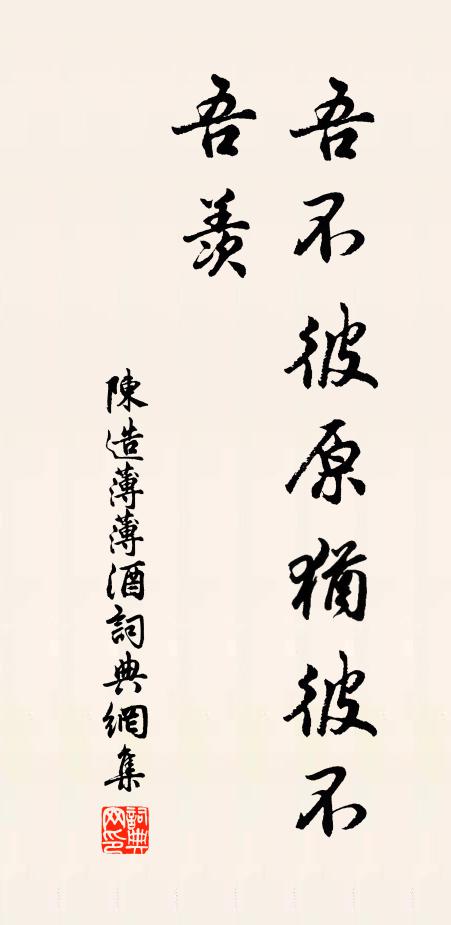 吾不彼原猶彼不
吾羨
陳造薄薄酒詞典網集
詞典網印